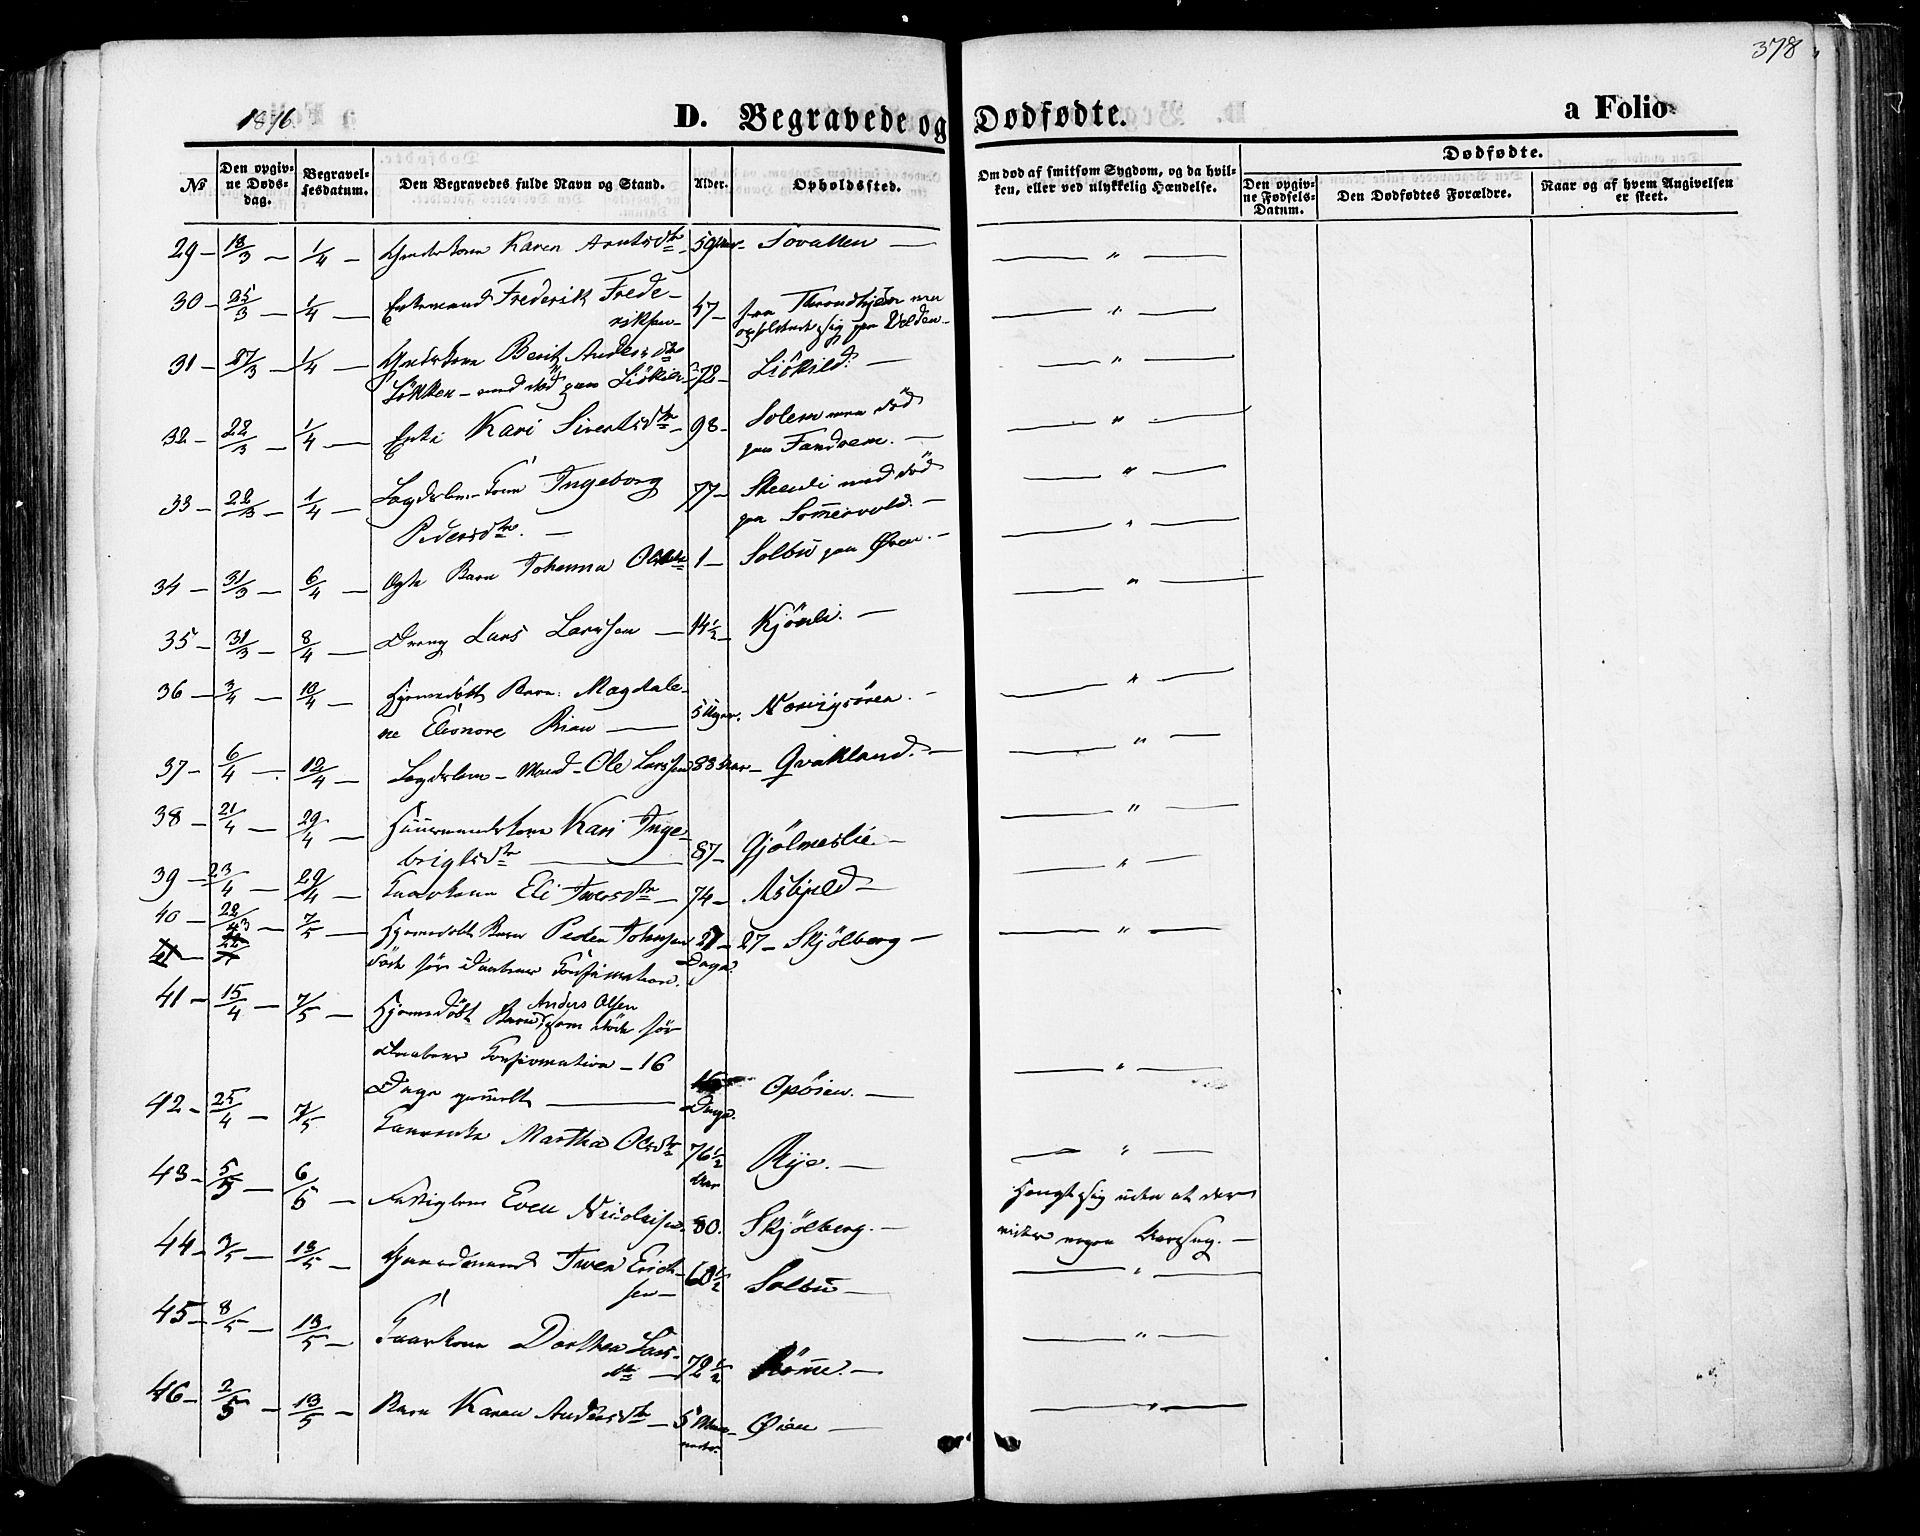 378
1876.
D. Begravede og Dødfødte.
a Folio
No
Den opgivne Døds-dag.
Begravelsesdatum.
Den Begravedes fulde Navn og Stand.
Alder.
Opholdssted.
Om død af smitsom Sygdom, og da hvilken, eller ved ulykkelig Hændelse.
Dødfødte.
Den opgivne Fødsels-Datum.
Den Dødfødtes Forældre.
Naar og af hvem Angivelsen er skeet.
29 – 18/3 – 1/4 – Karen Arntsdtr 59 – "
30 – 25/3 – 1/4 – Frederik Frede-
riksen – 47 – fra Throndhjem men
opholdende sig paa Volden – "
31 – 27/3 – 1/4 – Berit Andersdtr
Løkken – 72 – Liøkild. – "
32 – 22/3 – 1/4 – Kari Sivertsdtr – 98 – Solem men død
paa Fandrem. – "
33 – 22/3 – 1/4 – Lægdslem – Kone Ingeborg
Pedersdtr. – 77 – død
paa Sommervold. – "
34 – 31/3 – 6/4 – Ægte Barn Johanna 1 – Solbu paa Øien. – "
35 – 31/3 – 8/4 – Dreng Lars Larssen – 14½ – – "
36 – 3/4 – 10/4 – Hjemmedøbt Barn Magdale-
ne Eleonore Rian – 5 Uger. – "
37 – 6/4 – 12/4 – Lægdslem – Mand – Ole Larssen 88 Aar – Qvakland. – "
38 – 21/4 – 29/4 – Huusmandskone Kari Inge-
brigtsdtr – 87 – Gjølmeslie. – "
39 – 23/4 – 29/4 – Eli Iversdtr – 74 – Asbjeld – "
40 – 7/5 – Hjemmedøbt Barn Peder Johnsen 27 – 27 – Skjølberg – "
døde før Daabens Confirmation. Dage.
41 – 15/4 – 7/5 – Hjemmedøbt Barn Anders Olsen som døde før
Daabens Confirmation – 16
Dage gammelt – 16 Dage. – "
42 – 25/4 – 7/5 Martha Olsdtr 76½ Aar – Rye. – "
43 – 5/5 – 6/5 – Fattiglem Even Nicolaisen 80. Skjølberg. – Hængt sig uden at der
vides nogen Aarsag. –
44 – 3/5 – 13/5 – Gaardmand Iver Erich-
sen – 68½ Solbu – "
45 – 8/5 – 13/5 – Dorthea Lars-
dtr – 72½ Rømme. – "
46 – 2/5 – 13/5 – Barn Karen Andersdtr – 5 Maaneder. Øien – "